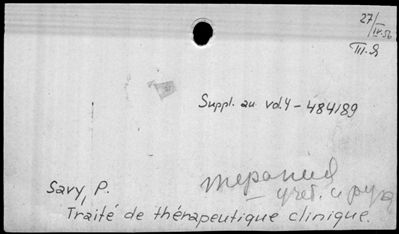 27/IV.56
III.Я
Suppl. au vol.4 – 484189
терапия
Savy, P.
— учеб. и рук
Traité de thérapeutique clinique.